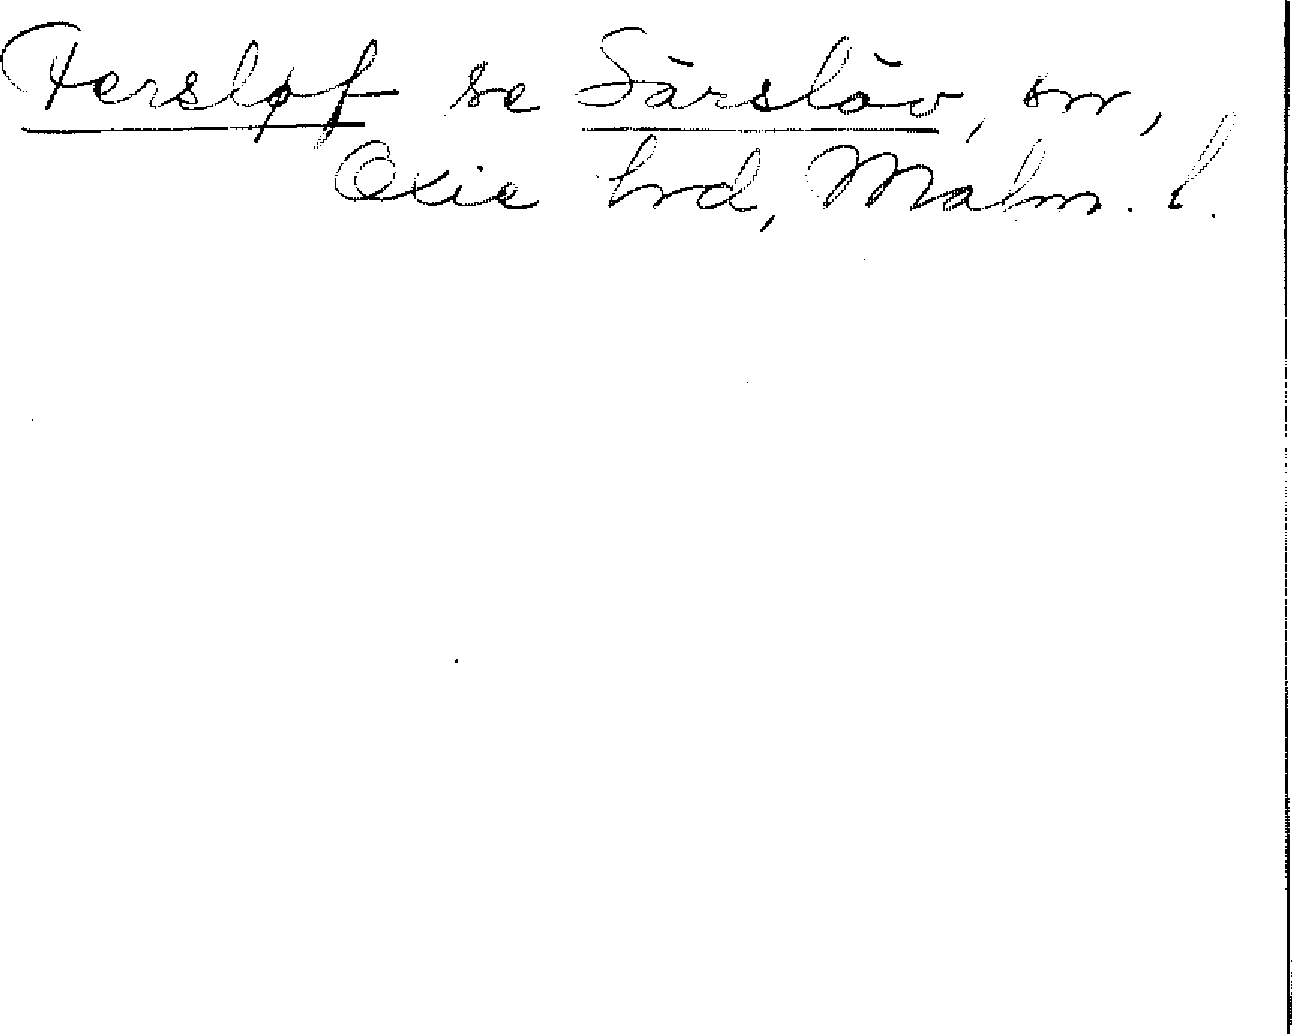 Tersløf se Särslöv, sn,
Oxie hrd, Malm. l.